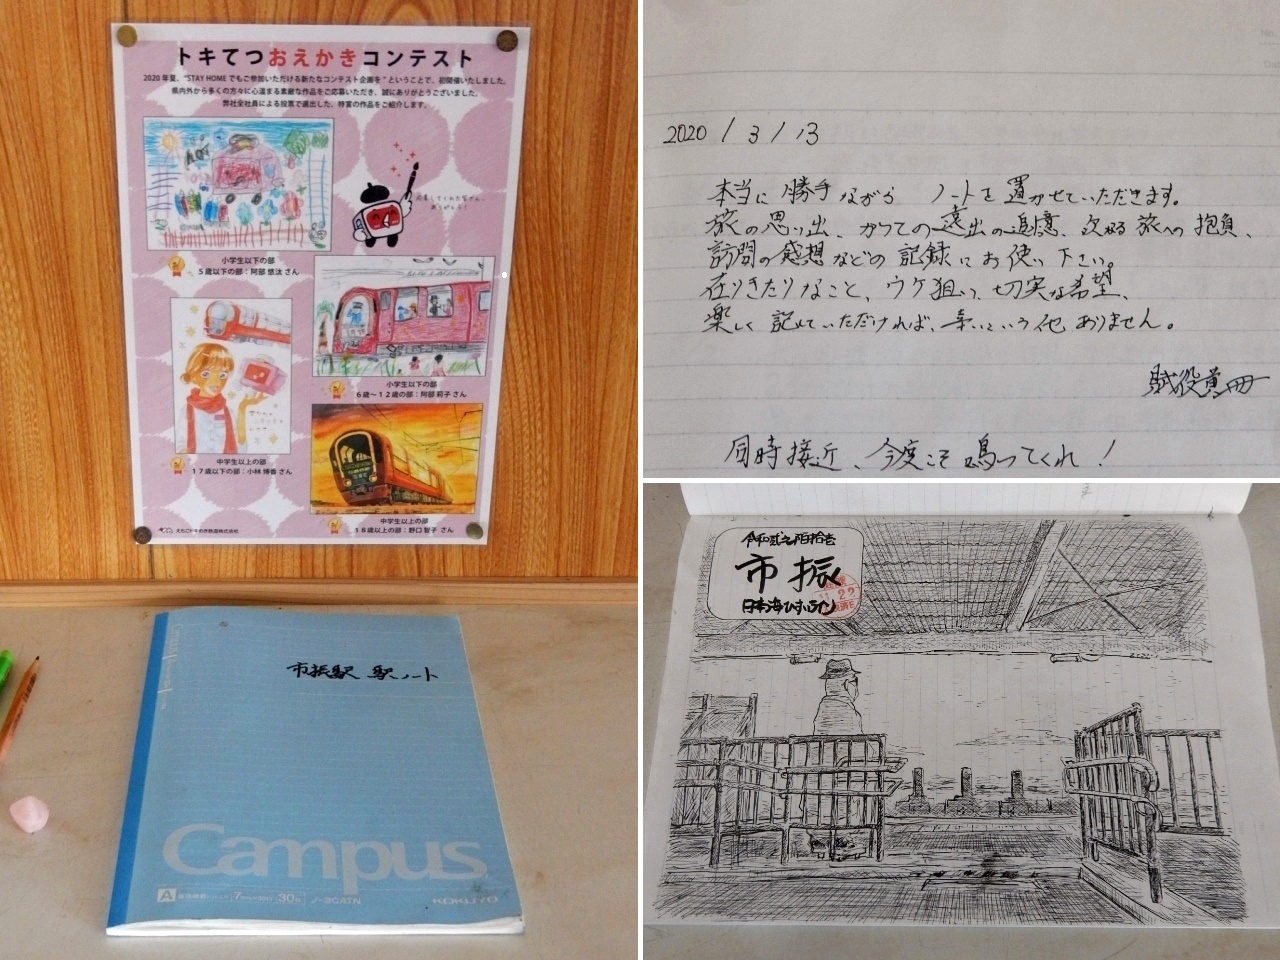 トキてつおえかきコンテスト
2020年夏、"STAY HOMEでもご参加いただける新たなコンテスト企画を"ということで、初開催いたしました。
県内外から多くの方々に心温まる素敵な作品をご応募いただき、誠にありがとうございました。
弊社全社員による投票で選出した、特賞の作品をご紹介します。
小学生以下の部
5歳以下の部:阿部 悠汰 さん
小学生以下の部
6歳〜12歳の部:阿部 莉子 さん
中学生以上の部
17歳以下の部:小林 博香 さん
中学生以上の部
18歳以上の部:野口 智子 さん
えちごトキめき鉄道株式会社
市振駅 駅ノート
Campus
A 7 30 ノ-3CATN
KOKUYO
2020/3/13
本当に勝手ながら ノートを置かせていただきます。
旅の思い出、かつての遠出の追憶、次なる旅への抱負、
訪問の感想などの記録にお使い下さい。
在りきたりなこと、ウケ狙い、切実な希望、
楽しく記していただければ、幸いという他ありません。
同時接近、今度こそ鳴ってくれ!
市振
日本海ひすいライン